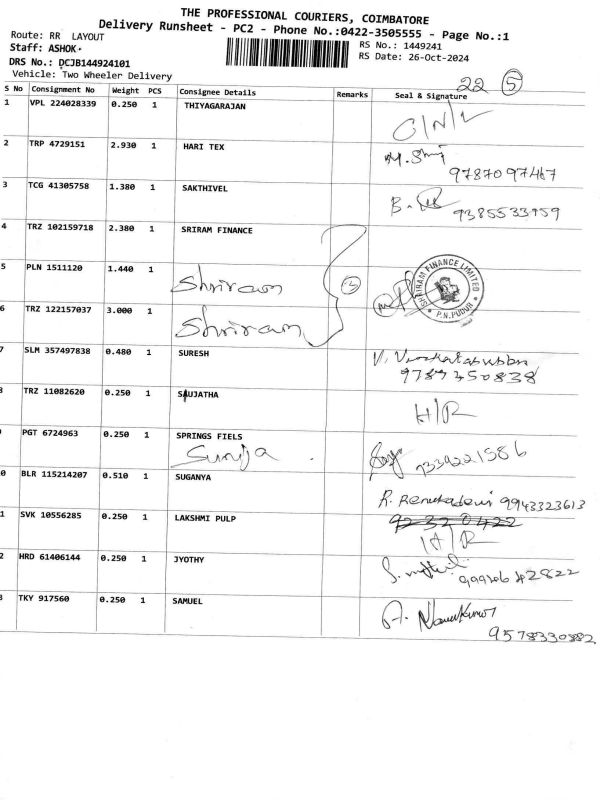 THE PROFESSIONAL COURIERS, COIMBATORE
Delivery Runsheet - PC2 - Phone No.:0422-3505555 - Page No.:1
Route: RR LAYOUT
RS No.: 1449241
Staff: ASHOK
RS Date: 26-Oct-2024
DRS No.: DCJB144924101
Vehicle: Two Wheeler Delivery
22 5
S No Consignment No Weight PCS Consignee Details Remarks Seal & Signature
1 VPL 224028339 0.250 1 THIYAGARAJAN
C/N/L
2 TRP 4729151 2.930 1 HARI TEX
9787097467
3 TCG 41305758 1.380 1 SAKTHIVEL
B. 9385533959
4 TRZ 102159718 2.380 1 SRIRAM FINANCE
5 PLN 1511120 1.440 1 Shriram
SHRIRAM FINANCE LIMITED
* P.N.PUDUR *
6 TRZ 122157037 3.000 1 Shriram
7 SLM 357497838 0.480 1 SURESH
V. Venkatasubbu
9789450838
TRZ 11082620 0.250 1 SAUJATHA
H/R
PGT 6724963 0.250 1 SPRINGS FIELS
Surya . 7339221586
0 BLR 115214207 0.510 1 SUGANYA
R. Renukadevi 9943323613
1 SVK 10556285 0.250 1 LAKSHMI PULP
H/R
2 HRD 61406144 0.250 1 JYOTHY
3 TKY 917560 0.250 1 SAMUEL
A. Naveekumar
9578330882